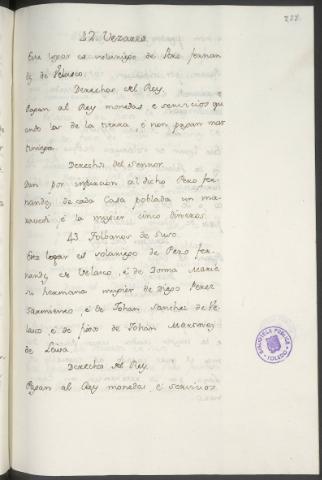 42. Vezares
Este logar es solariego de Pero fernan
dz de Velasco.
Derechos del Rey.
Pagan al Rey monedas, e servicios qu
ando los de la tierra, e non pagan mar
tiniega.
Derechos del Sennor.
Dan por infurcion al dicho Pero fer-
nandz de cada Casa poblada un ma-
ravedi e la mugier cinco dineros.
43. de Suso.
Este logar es solariego de Pero fer-
nandz de Velasco, é de Donna Maria
su hermana mugier de Diego Perez
Sarmiento, é de Johan Sanchez de Ve
lasco é de fijos de Johan Martinez
de Leiva.
Derechos del Rey.
Pagan al Rey monedas, é servicios
BIBLIOTECA PUBLICA
TOLEDO